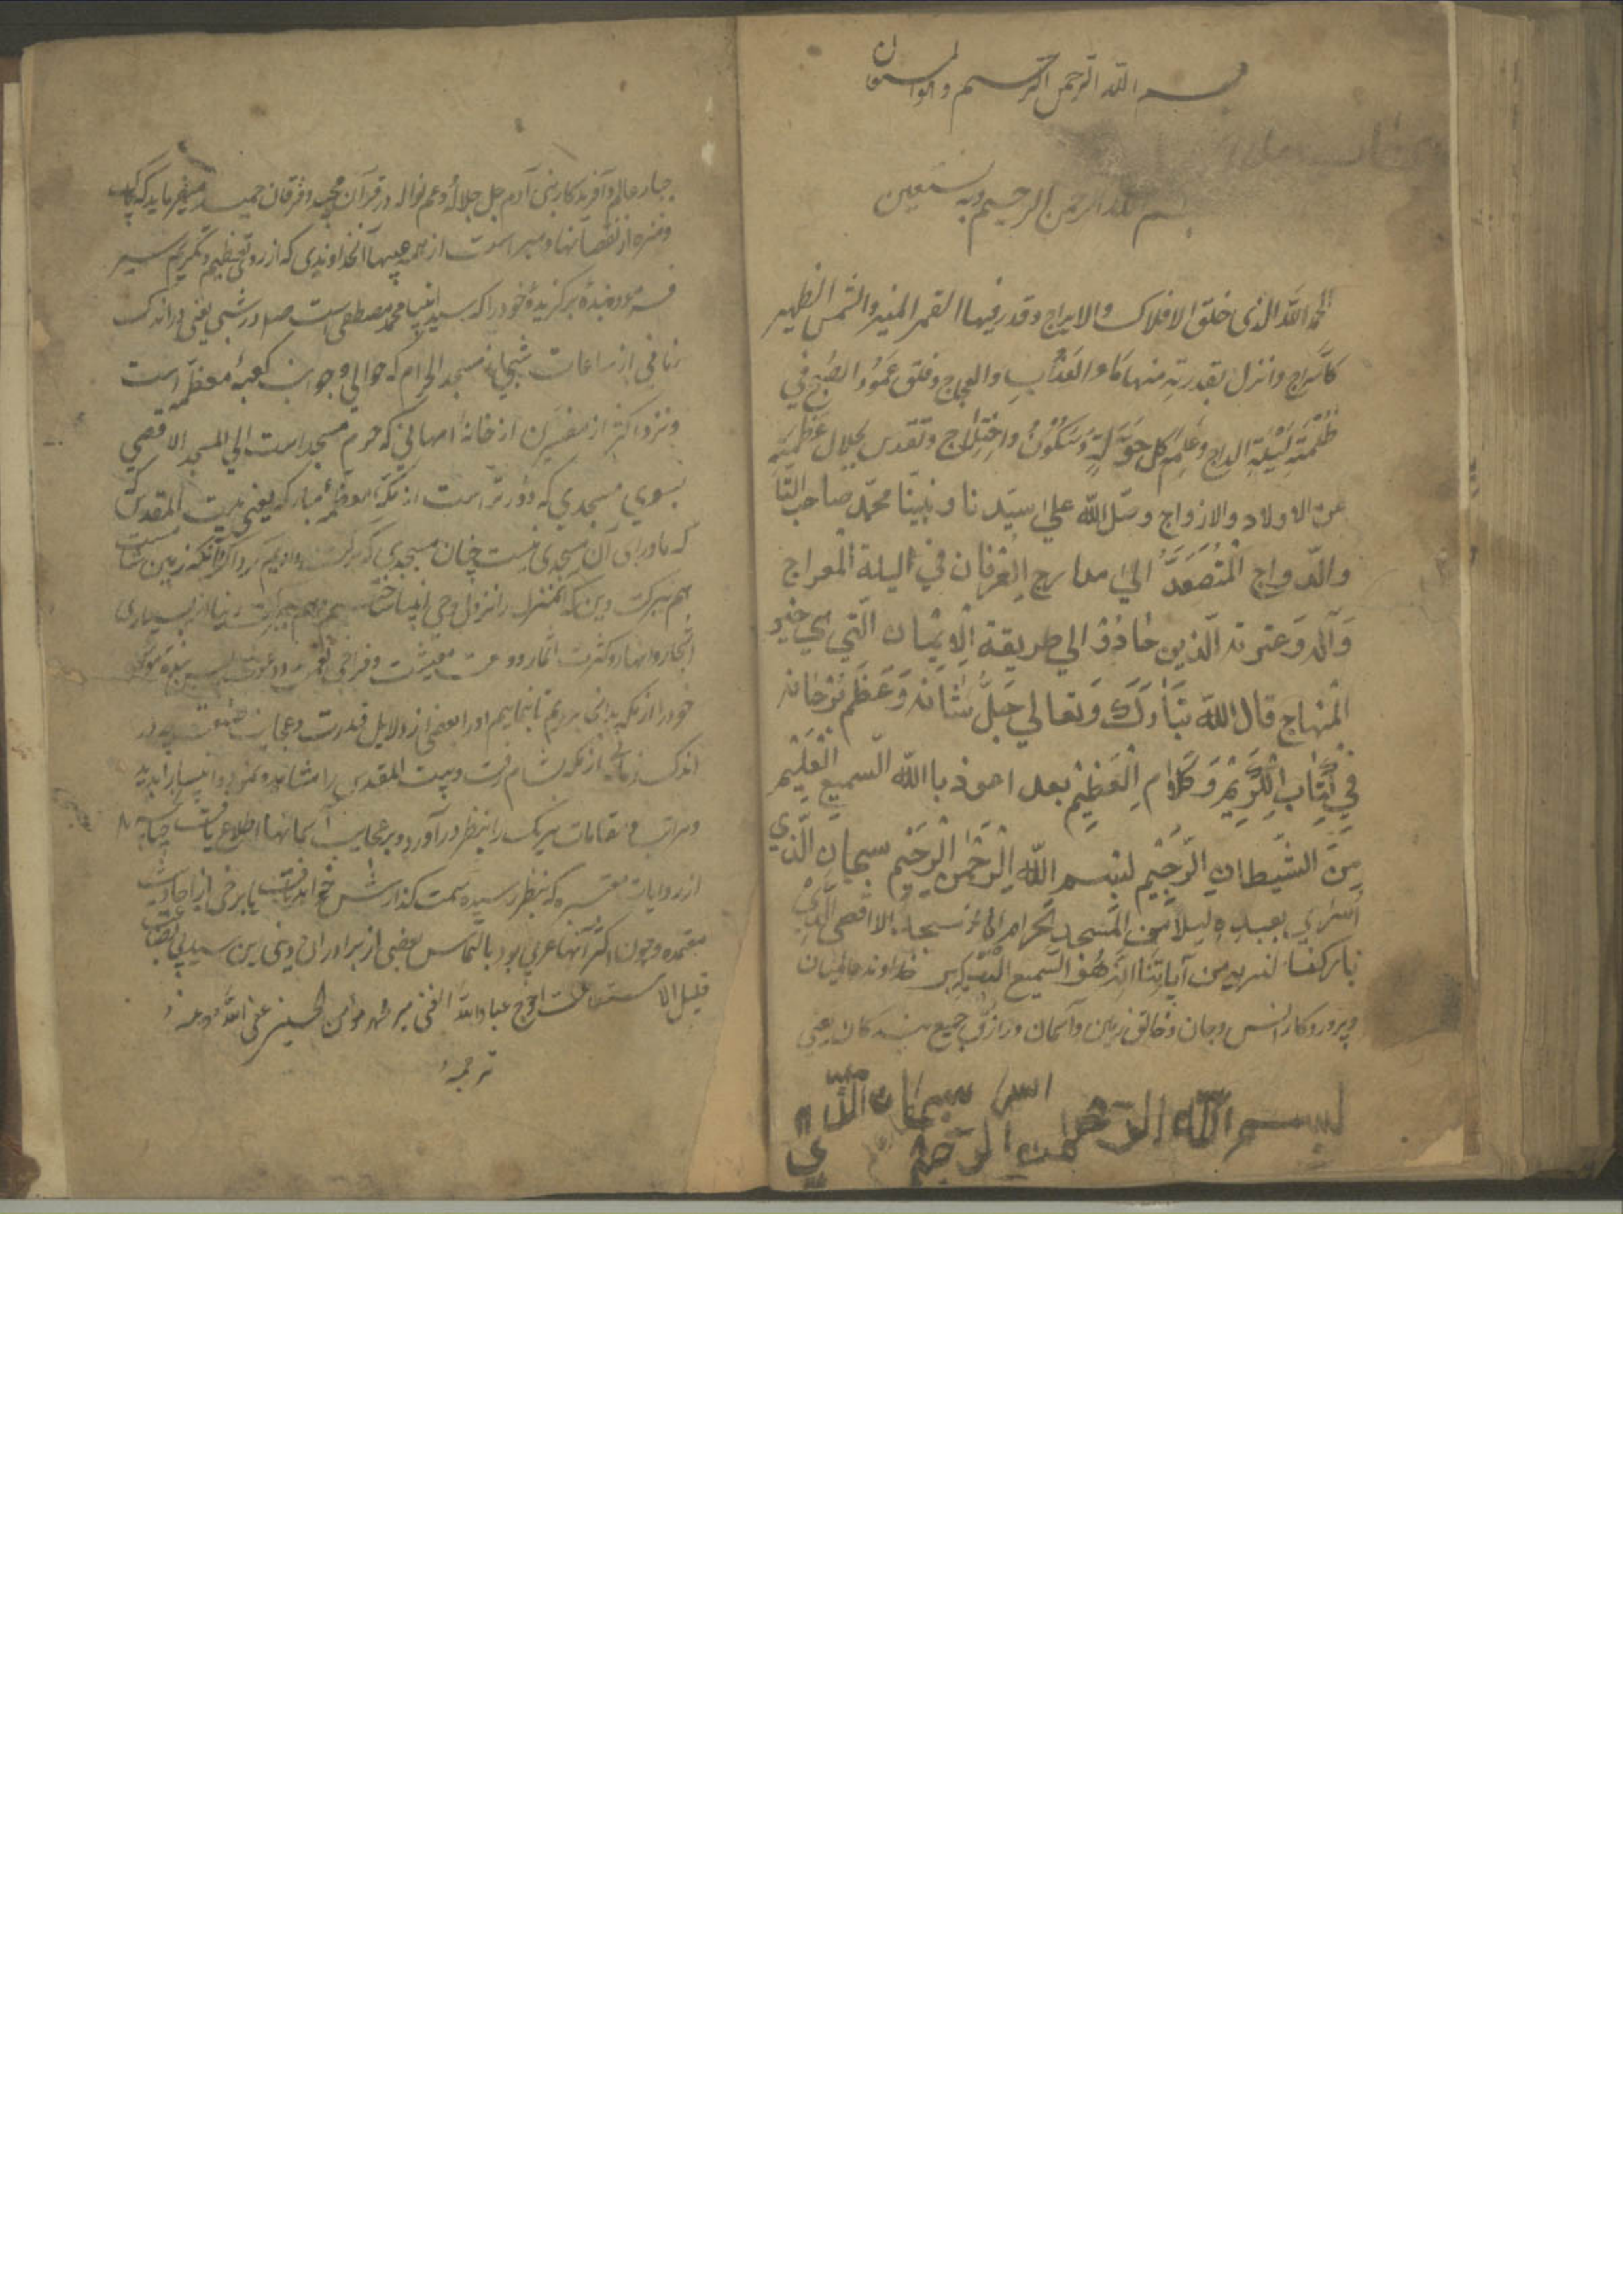 بسم الله الرحمن الرحیم و هو المستعان
بسم الله الرحمن الرحیم وبه نستعین
الحمد الله الذی خلق الافلاک والابراج وقدر فیها القمر المنیر والشمس الظهیر
کاسراج وانزل بقدرته منها ماء العذاب والعجاج وفلق عمود الصبح فی
ظلمة لیلة الداج وعلمه کل حرکة وسکون واختلاج وتقدس بجلال عظمته
عن الاولاد والازواج وصل الله علی سیدنا ونبینا محمد صاحب التا
والدواج المتصعد الی مدارج العرفان فی الیلة المعراج
وآله وعترته الذین حاذو الی طریقة الایمان التی هی خیر
المنهاج قال الله تبارک وتعالی جل شانه وعظم برحانه
فی کتاب الکریم وکلام العظیم بعد اعوذ باالله السمیع العلیم
من الشیطان الرجیم بسم الله الرحمن الرحیم سبحان الذی
اسری بعبده لیلا من المسجد الحرام الی المسجد الاقصی الذی
بارکنا لنریه من آیاتنا انه هو السمیع البصیر خداوند عالمیان
وپروردکار انس وجان وخالق زمین وآسمان ورازق جمیع بندکان یعنی
بسم الله الرحمن الرحیم
اسرا سبحان الذی
جبار عالم وآفریدکار بنی آدم جل جلاله وعم نواله در قرآن مجید وفرقان حمید میفرماید که پاک
ومنزه از نقصانها ومبراست از همه عیبها آنخداوندی که از روی تعظیم وتکریم سیر
فرمود بنده برکزیده خود را که سید انبیا محمد مصطفی است صلعم در شبی یعنی در اندک
زمانی از ساعات شبی از مسجد الحرام که حوالی وجوانب کعبه معظمه است
ونزد اکثر از مفسرین از خانه امهانی که حرم مسجد است الی المسجد الاقصی
بسوی مسجدی که دورتر است از مکه معظمه مبارکه یعنی بیت المقدس
که ماورای آن مسجدی نیست چنان مسجدی که برکت دادیم کرداکرد آنکه زمین شامست
هم ببرکت دین که آنمنزل را نزول وحی انبیا ساختیم وهم ببرکت دنیا از بسیاری
اشجار وانهار وکثرت اثمار ووسعت معیشت وفراخی نعمت
خود را از مکه بدانجا بردیم تا بنماییم او را بعضی از دلایل قدرت وعجایب صنعت که در
اندک زمانی از مکه بشام رفت وبیت المقدس را مشاهده نمود وانبیا را بدید
ومراتب ومقامات هریک را بنظر درآورد وبر عجایب آسمانها اطلاع یافت چنانچه
از روایات معتبره که بنظر رسیده سمت کذارش خواهد یافت با برخی از احادیث
معتمده وچون اکثر آنها عربی بود بالتماس بعضی از برادران دینی این سید بی بضاعت
قلیل الاستطاعت احوج عباد الله الغنی میر محمد مومن الحسینی عفی الله
ترجمه